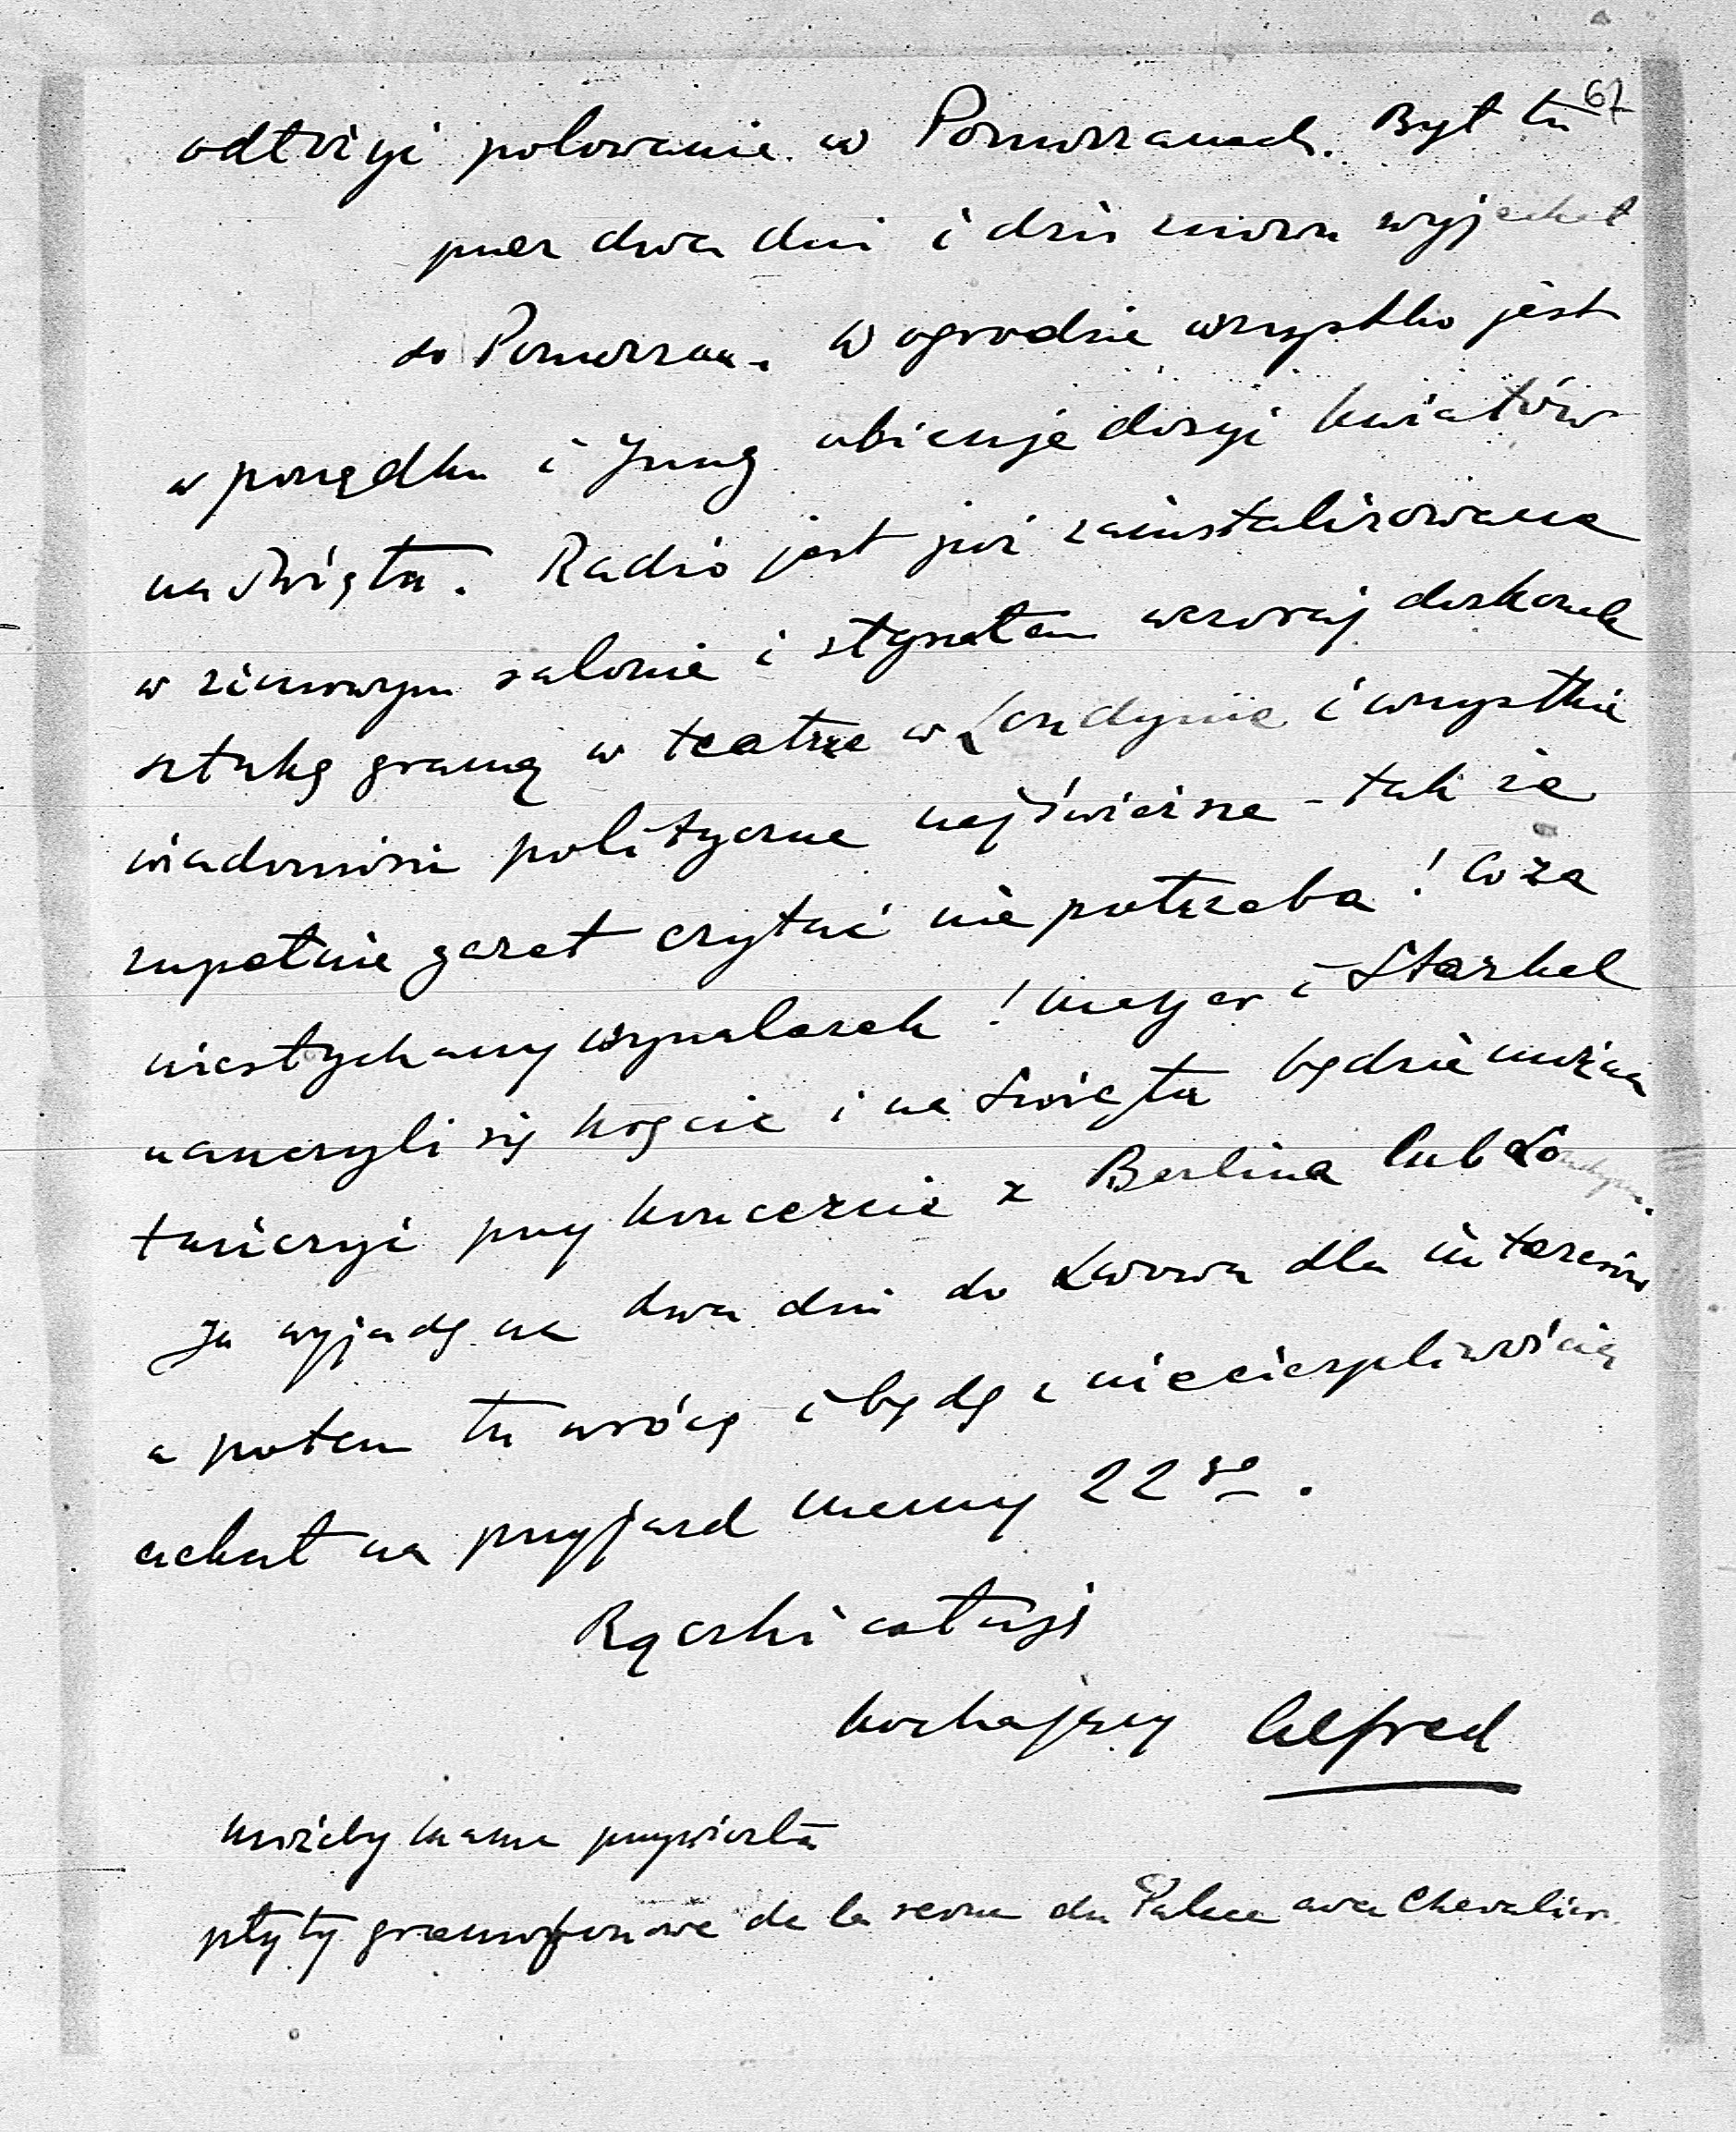 67
odłożyć polowanie w Pomorzanach. Był tu
przez dwa dni i dziś znowu wyjechał
do Pomorzan. W ogrodzie wszystko jest
w porządku i Jung obiecuje dosyć kwiatów
na Święta. Radio jest już zainstalizowane
w zimowym salonie i słyszałem wczoraj doskonale
sztukę graną w teatrze w Londynie i wszystkie
wiadomości polityczne najświeższe - tak że
zupełnie gazet czytać nie potrzeba! Co za
niesłychany wynalazek! Meyer i Starkel
nauczyli się kręcić i na Święta będzie można
tańczyć przy koncercie z Berlina lub Londynu.
Ja wyjadę na dwa dni do Lwowa dla interesów
a potem tu wrócę i będę z niecierpliwością
czekał na przyjazd Mamy 22go.
Rączki całuję
kochający Alfred
możeby Mama przywiozła
płyty gramofonowe de la revue du Palace avec Chevalier.